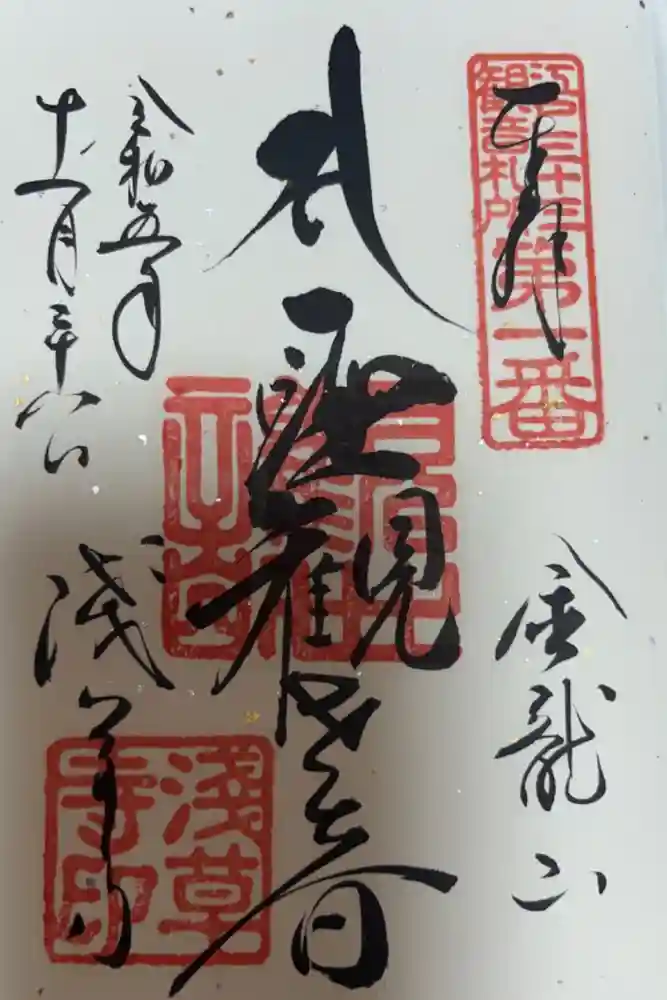 奉拝
江戸三十三
観音札所
第一番
金龍山
聖観世音
令和五年
十一月二十八日
浅草寺
淺草
寺印